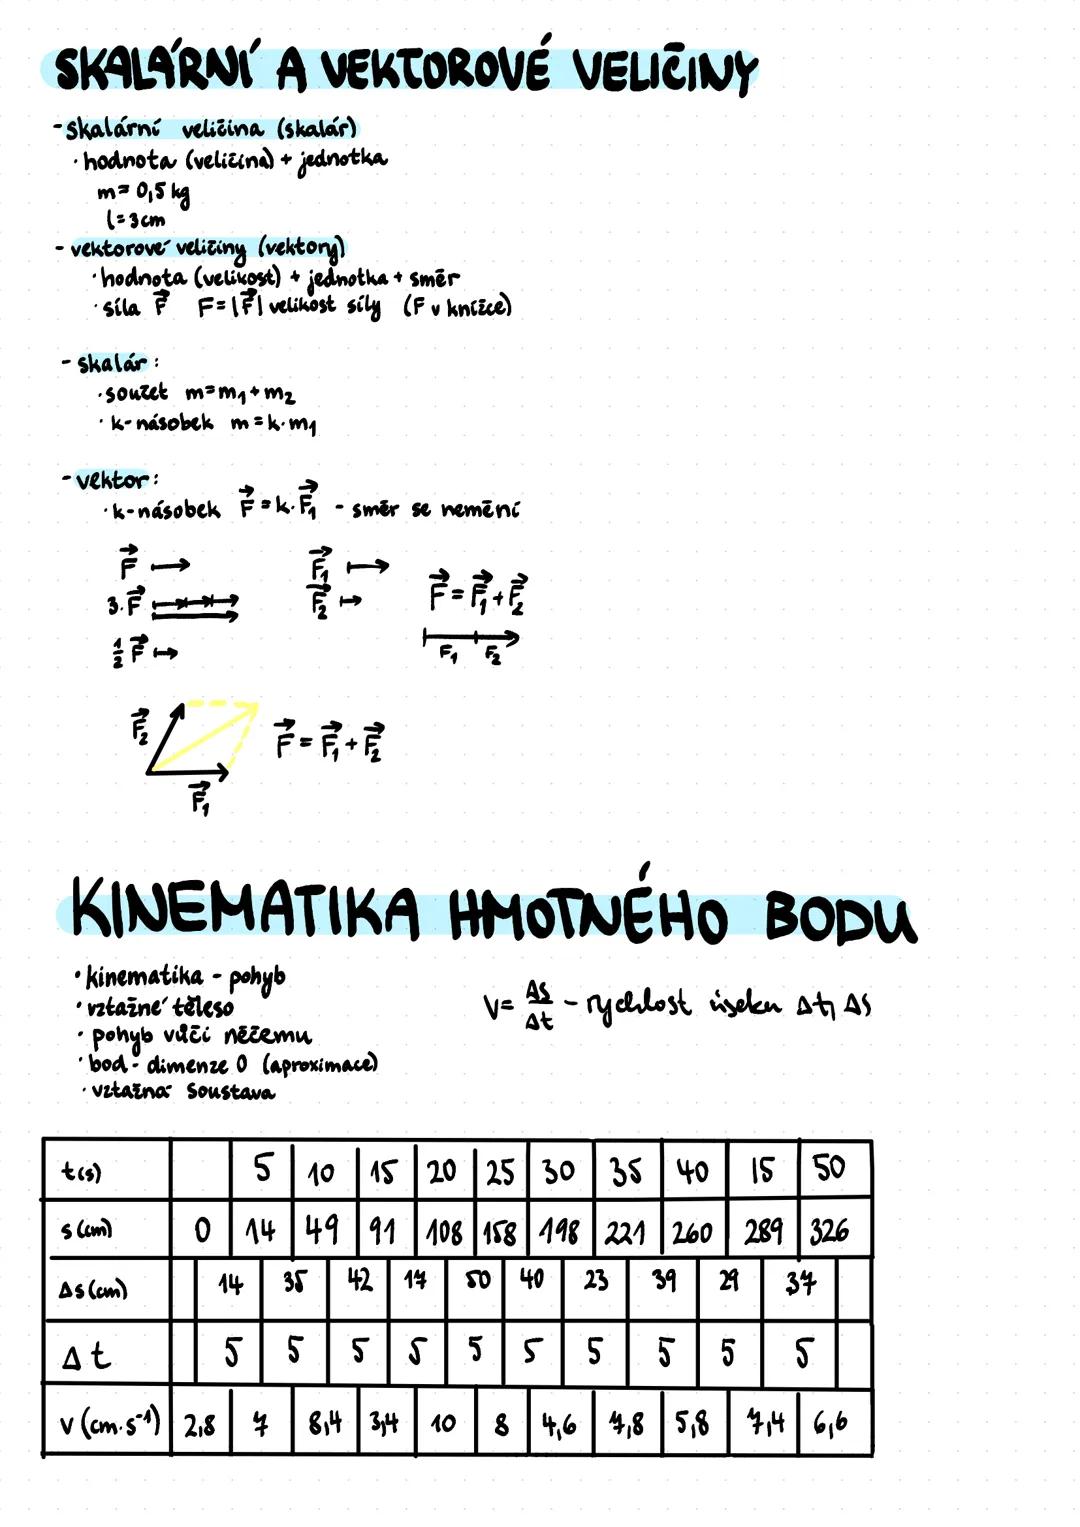 SKALÁRNÍ A VEKTOROVÉ VELIČINY
- skalární veličina (skalár)
· hodnota (veličina) + jednotka
m = 0,5 kg
l = 3 cm
- vektorové veličiny (vektory)
· hodnota (velikost) + jednotka + směr
· síla F⃗ F = |F⃗| velikost síly (F v knížce)
- skalár:
· součet m = m₁ + m₂
· k-násobek m = k · m₁
- vektor:
· k-násobek F⃗ = k · F⃗₁ - směr se nemění
F⃗
3 · F⃗
½ F⃗
F⃗₁
F⃗₂
F⃗ = F⃗₁ + F⃗₂
F₁ F₂
F⃗₂
F⃗₁
F⃗ = F⃗₁ + F⃗₂
KINEMATIKA HMOTNÉHO BODU
· kinematika - pohyb
· vztažné těleso
· pohyb vůči něčemu
· bod - dimenze 0 (aproximace)
· vztažná soustava
v = Δs/Δt - rychlost úseku Δt, Δs
t(s) 5 10 15 20 25 30 35 40 15 50
s (cm) 0 14 49 91 108 158 198 221 260 289 326
Δs (cm) 14 35 42 17 50 40 23 39 29 37
Δt 5 5 5 5 5 5 5 5 5 5
v (cm · s⁻¹) 2,8 7 8,4 3,4 10 8 4,6 7,8 5,8 7,4 6,6